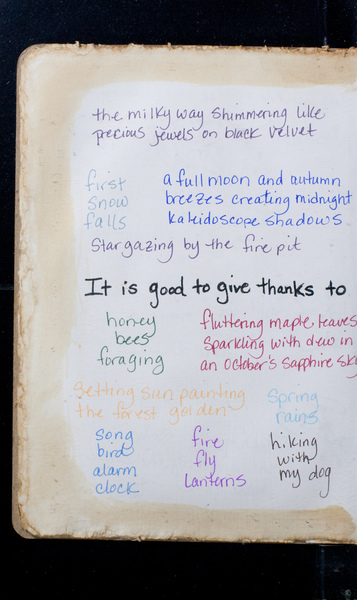 the milky way shimmering like
precious jewels on black velvet
first
snow
falls
a full moon and autumn
breezes creating midnight
kaleidoscope shadows
Stargazing by the fire pit
It is good to give thanks to
honey
bees
foraging
fluttering maple leaves
sparkling with dew in
an October's sapphire sky
Setting sun painting
the forest golden
Spring
rains
song
bird
alarm
clock
fire
fly
lanterns
hiking
with
my dog